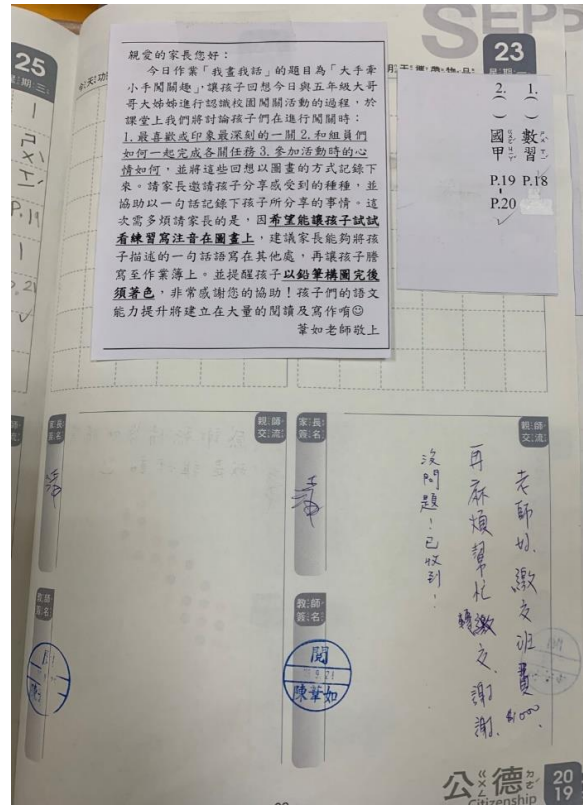 SEPT
23
星期一
25
星期三
親愛的家長您好：
今日作業「我畫我話」的題目為「大手牽
小手闖關趣」，讓孩子回想今日與五年級大哥
哥大姊姊進行認識校園闖關活動的過程，於
課堂上我們將討論孩子們在進行闖關時：
1.最喜歡或印象最深刻的一關2.和組員們
如何一起完成各關任務3.參加活動時的心
情如何，並將這些回想以圖畫的方式記錄下
來。請家長邀請孩子分享感受到的種種，並
協助以一句話記錄下孩子所分享的事情。這
次需多煩請家長的是，因希望能讓孩子試試
看練習寫注音在圖畫上，建議家長能夠將孩
子描述的一句話語寫在其他處，再讓孩子謄
寫至作業薄上。並提醒孩子以鉛筆構圖完後
須著色，非常感謝您的協助！孩子們的語文
能力提升將建立在大量的閱讀及寫作唷☺
葦如老師敬上
1.（）數習 P.18
2.（）國甲 P.19
P.20
親師交流
老師好，繳交班費$1000，
再麻煩幫忙繳交，謝謝。
沒問題！已收到！
家長簽名
教師簽名
閱
陳葦如
親師交流
家長簽名
教師簽名
公德
Citizenship
2019